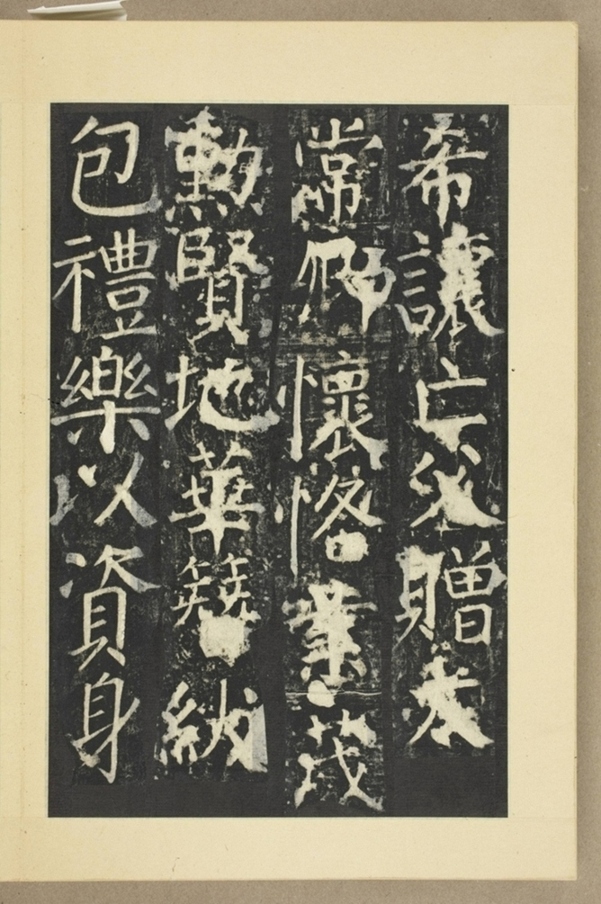 希讓亡父贈太
常卿懷恪業茂
勲賢地華簪紱
包禮樂以資身